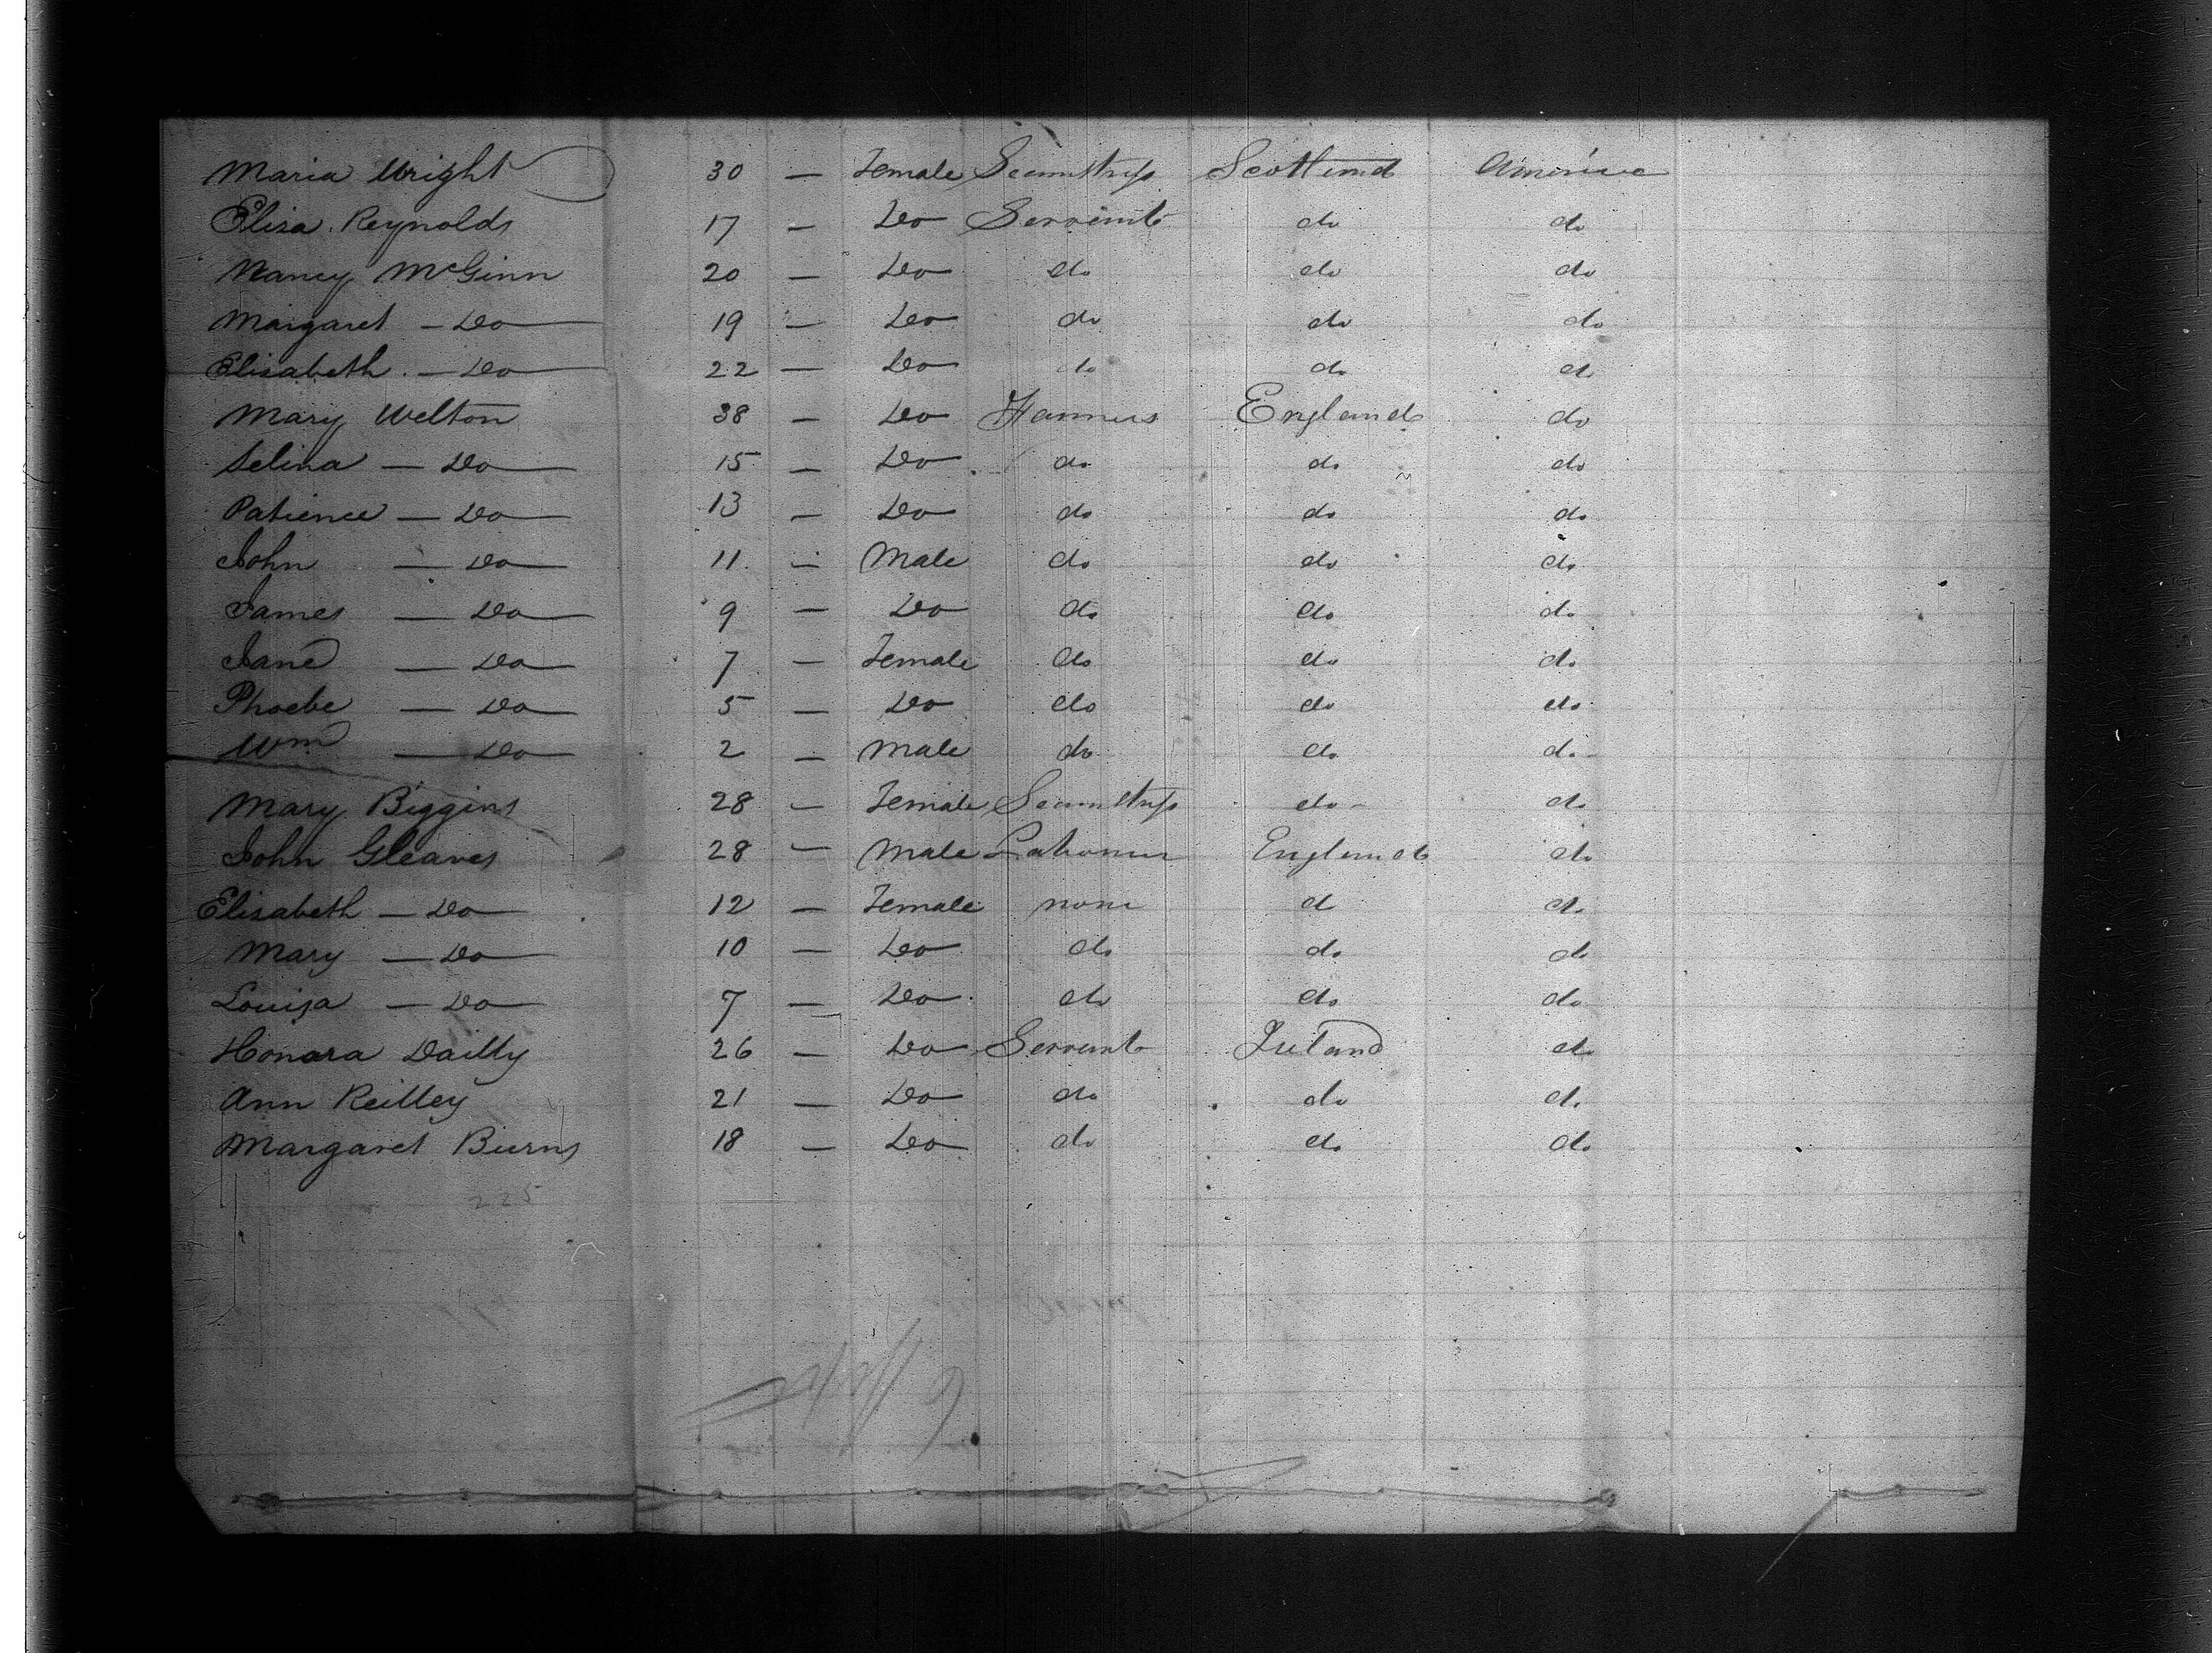 Maria Wright 30 — Female Seamstress Scotland America
Elisa Reynolds 17 — Do Servant do do
Nancy McGinn 20 — Do do do do
Margaret — Do 19 — Do do do do
Elisabeth — Do 22 — Do do do do
Mary Welton 38 — Do England do
Selina — Do 15 — Do do do do
Patience — Do 13 — Do do do do
John — Do 11 — Male do do do
James — Do 9 — Do do do do
Jane — Do 7 — Female do do do
Phoebe — Do 5 — Do do do do
Wm — Do 2 — Male do do do
Mary Biggins 28 — Female Seamstress do do
John Gleaves 28 — Male Labourer England do
Elisabeth — Do 12 — Female none d do
Mary — Do 10 — Do do do do
Louisa — Do 7 — Do do do do
Honara Dailly 26 — Do Servant Ireland do
Ann Reilley 21 — Do do do do
Margaret Burns 18 — Do do do do
225